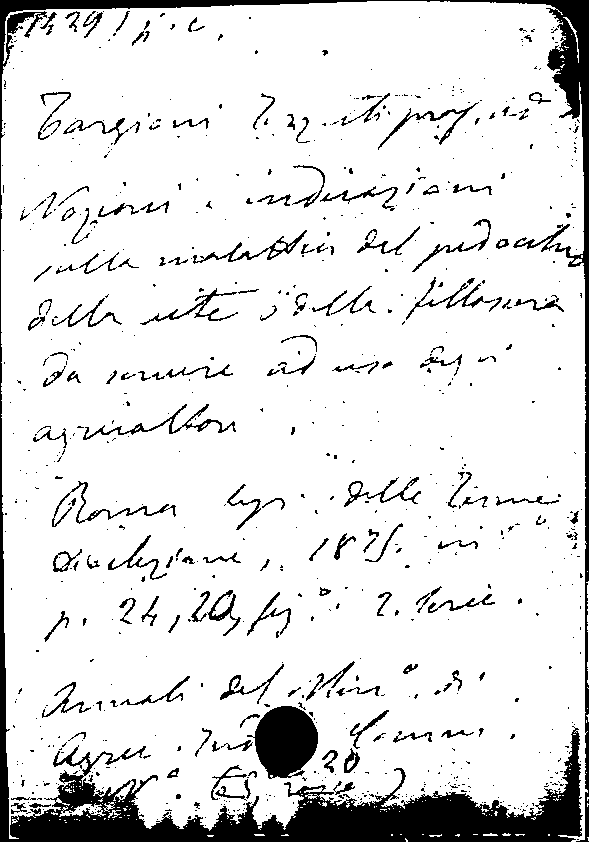 1429 / p. c.
Targioni Tozzetti prof. Ad.
Nozioni e indicazioni
sulla malattia del pidocchio
della vite o della fillossera
da servire ad uso degli
agricoltori.
Roma tip. delle Terme
Diocleziane, 1875. in
p. 24, 20, fig. 2. Serie.
Annali del Min.º di
Agric. Ind. Comm.
Nº. 20